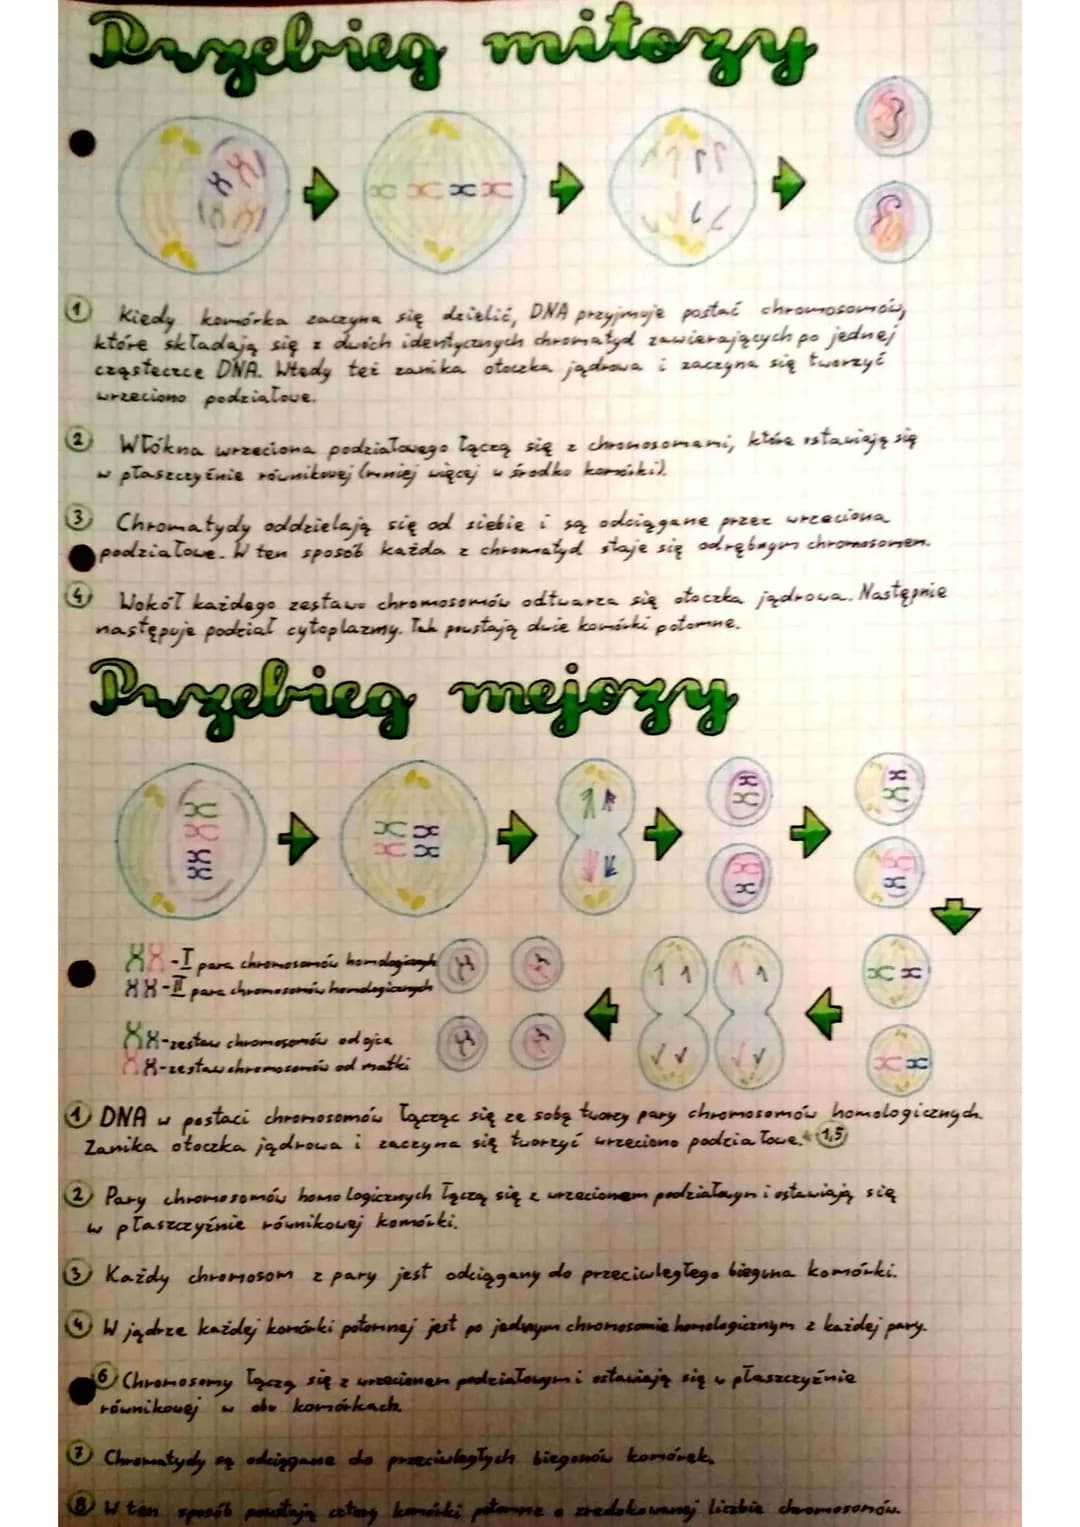 Przebieg mitozy
1 Kiedy komórka zaczyna się dzielić, DNA przyjmuje postać chromosomów,
które składają się z dwóch identycznych chromatyd zawierających po jednej
cząsteczce DNA. Wtedy też zanika otoczka jądrowa i zaczyna się tworzyć
wrzeciono podziałowe.
2 Włókna wrzeciona podziałowego łączą się z chromosomami, które ustawiają się
w płaszczyźnie równikowej (mniej więcej w środku komórki).
3 Chromatydy oddzielają się od siebie i są odciągane przez wrzeciona
podziałowe. W ten sposób każda z chromatyd staje się odrębnym chromosomem.
4 Wokół każdego zestawu chromosomów odtwarza się otoczka jądrowa. Następnie
następuje podział cytoplazmy. Tak powstają dwie komórki potomne.
Przebieg mejozy
- I para chromosomów homologicznych
- II para chromosomów homologicznych
- zestaw chromosomów od ojca
- zestaw chromosomów od matki
1 DNA w postaci chromosomów łącząc się ze sobą tworzy pary chromosomów homologicznych.
Zanika otoczka jądrowa i zaczyna się tworzyć wrzeciono podziałowe. 1,5
2 Pary chromosomów homologicznych łączą się z wrzecionem podziałowym i ustawiają się
w płaszczyźnie równikowej komórki.
3 Każdy chromosom z pary jest odciągany do przeciwległego bieguna komórki.
4 W jądrze każdej komórki potomnej jest po jednym chromosomie homologicznym z każdej pary.
6 Chromosomy łączą się z wrzecionem podziałowym i ustawiają się w płaszczyźnie
równikowej w obu komórkach.
7 Chromatydy są odciągane do przeciwległych biegunów komórek.
8 W ten sposób powstają cztery komórki potomne o zredukowanej liczbie chromosomów.